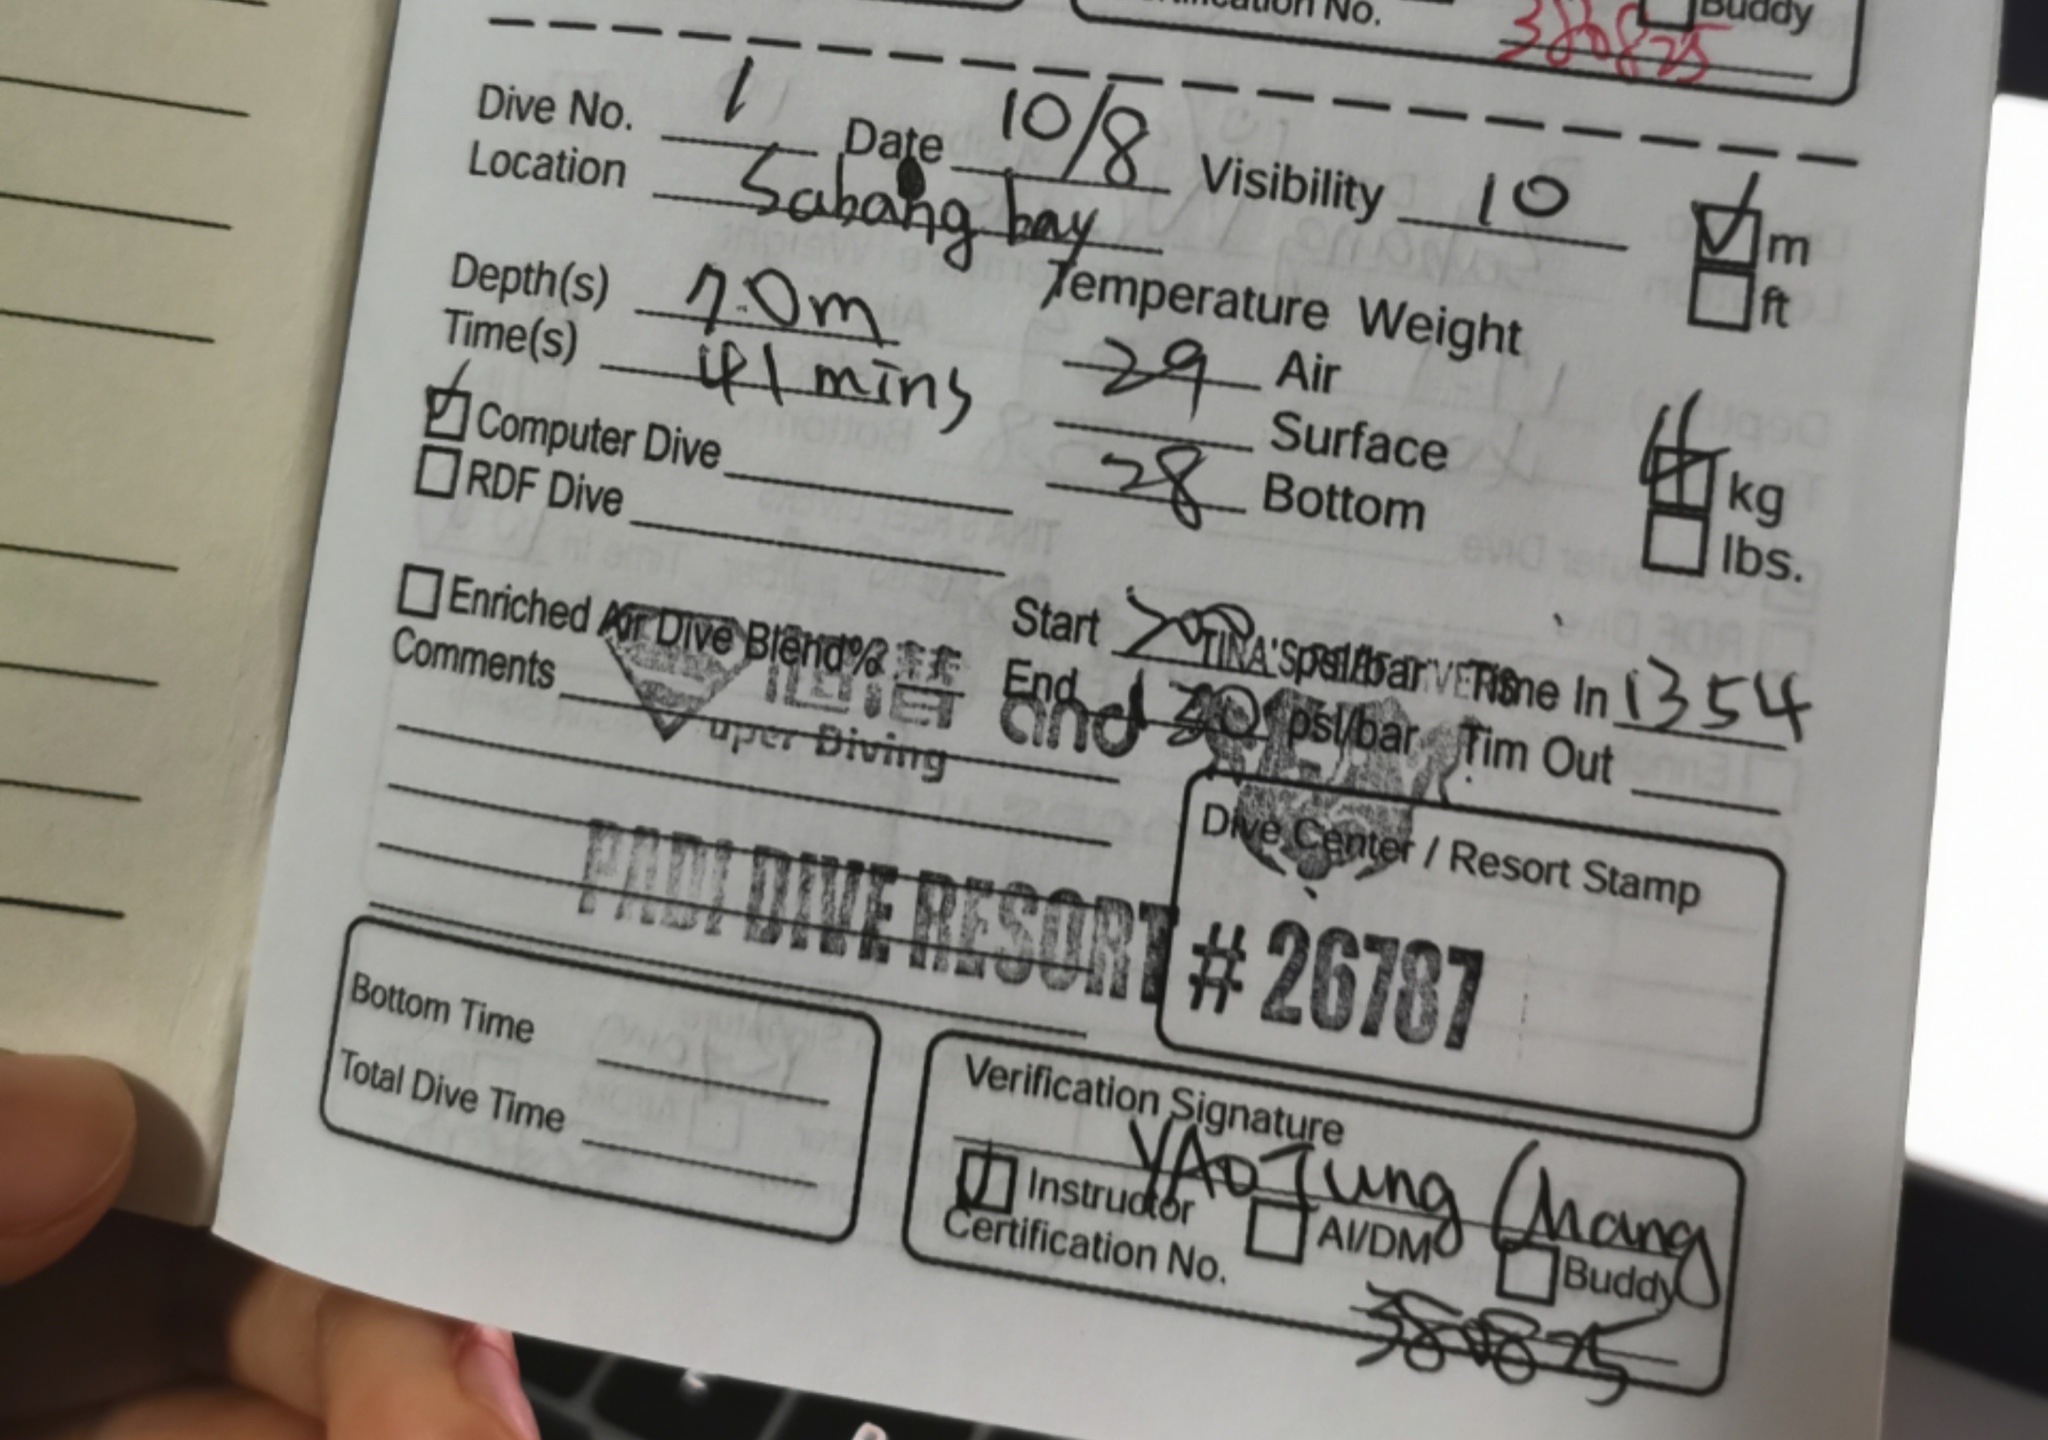 Certification No.
Buddy
380825
Dive No. 1 Date 10/8 Visibility 10 m
ft
Location Sabang bay
Depth(s) 7.0m Temperature Weight
Time(s) 41 mins 29 Air
Computer Dive Surface 4 kg
RDF Dive 28 Bottom lbs.
Enriched Air Dive Blend% Start 200 psi/bar Time In 1354
Comments End 30 psi/bar Tim Out
TINA'S
and
uper Diving
PADI DIVE RESORT # 26787
Dive Center / Resort Stamp
Bottom Time
Total Dive Time
Verification Signature
YAO Tung Chang
Instructor AI/DM Buddy
Certification No.
380825